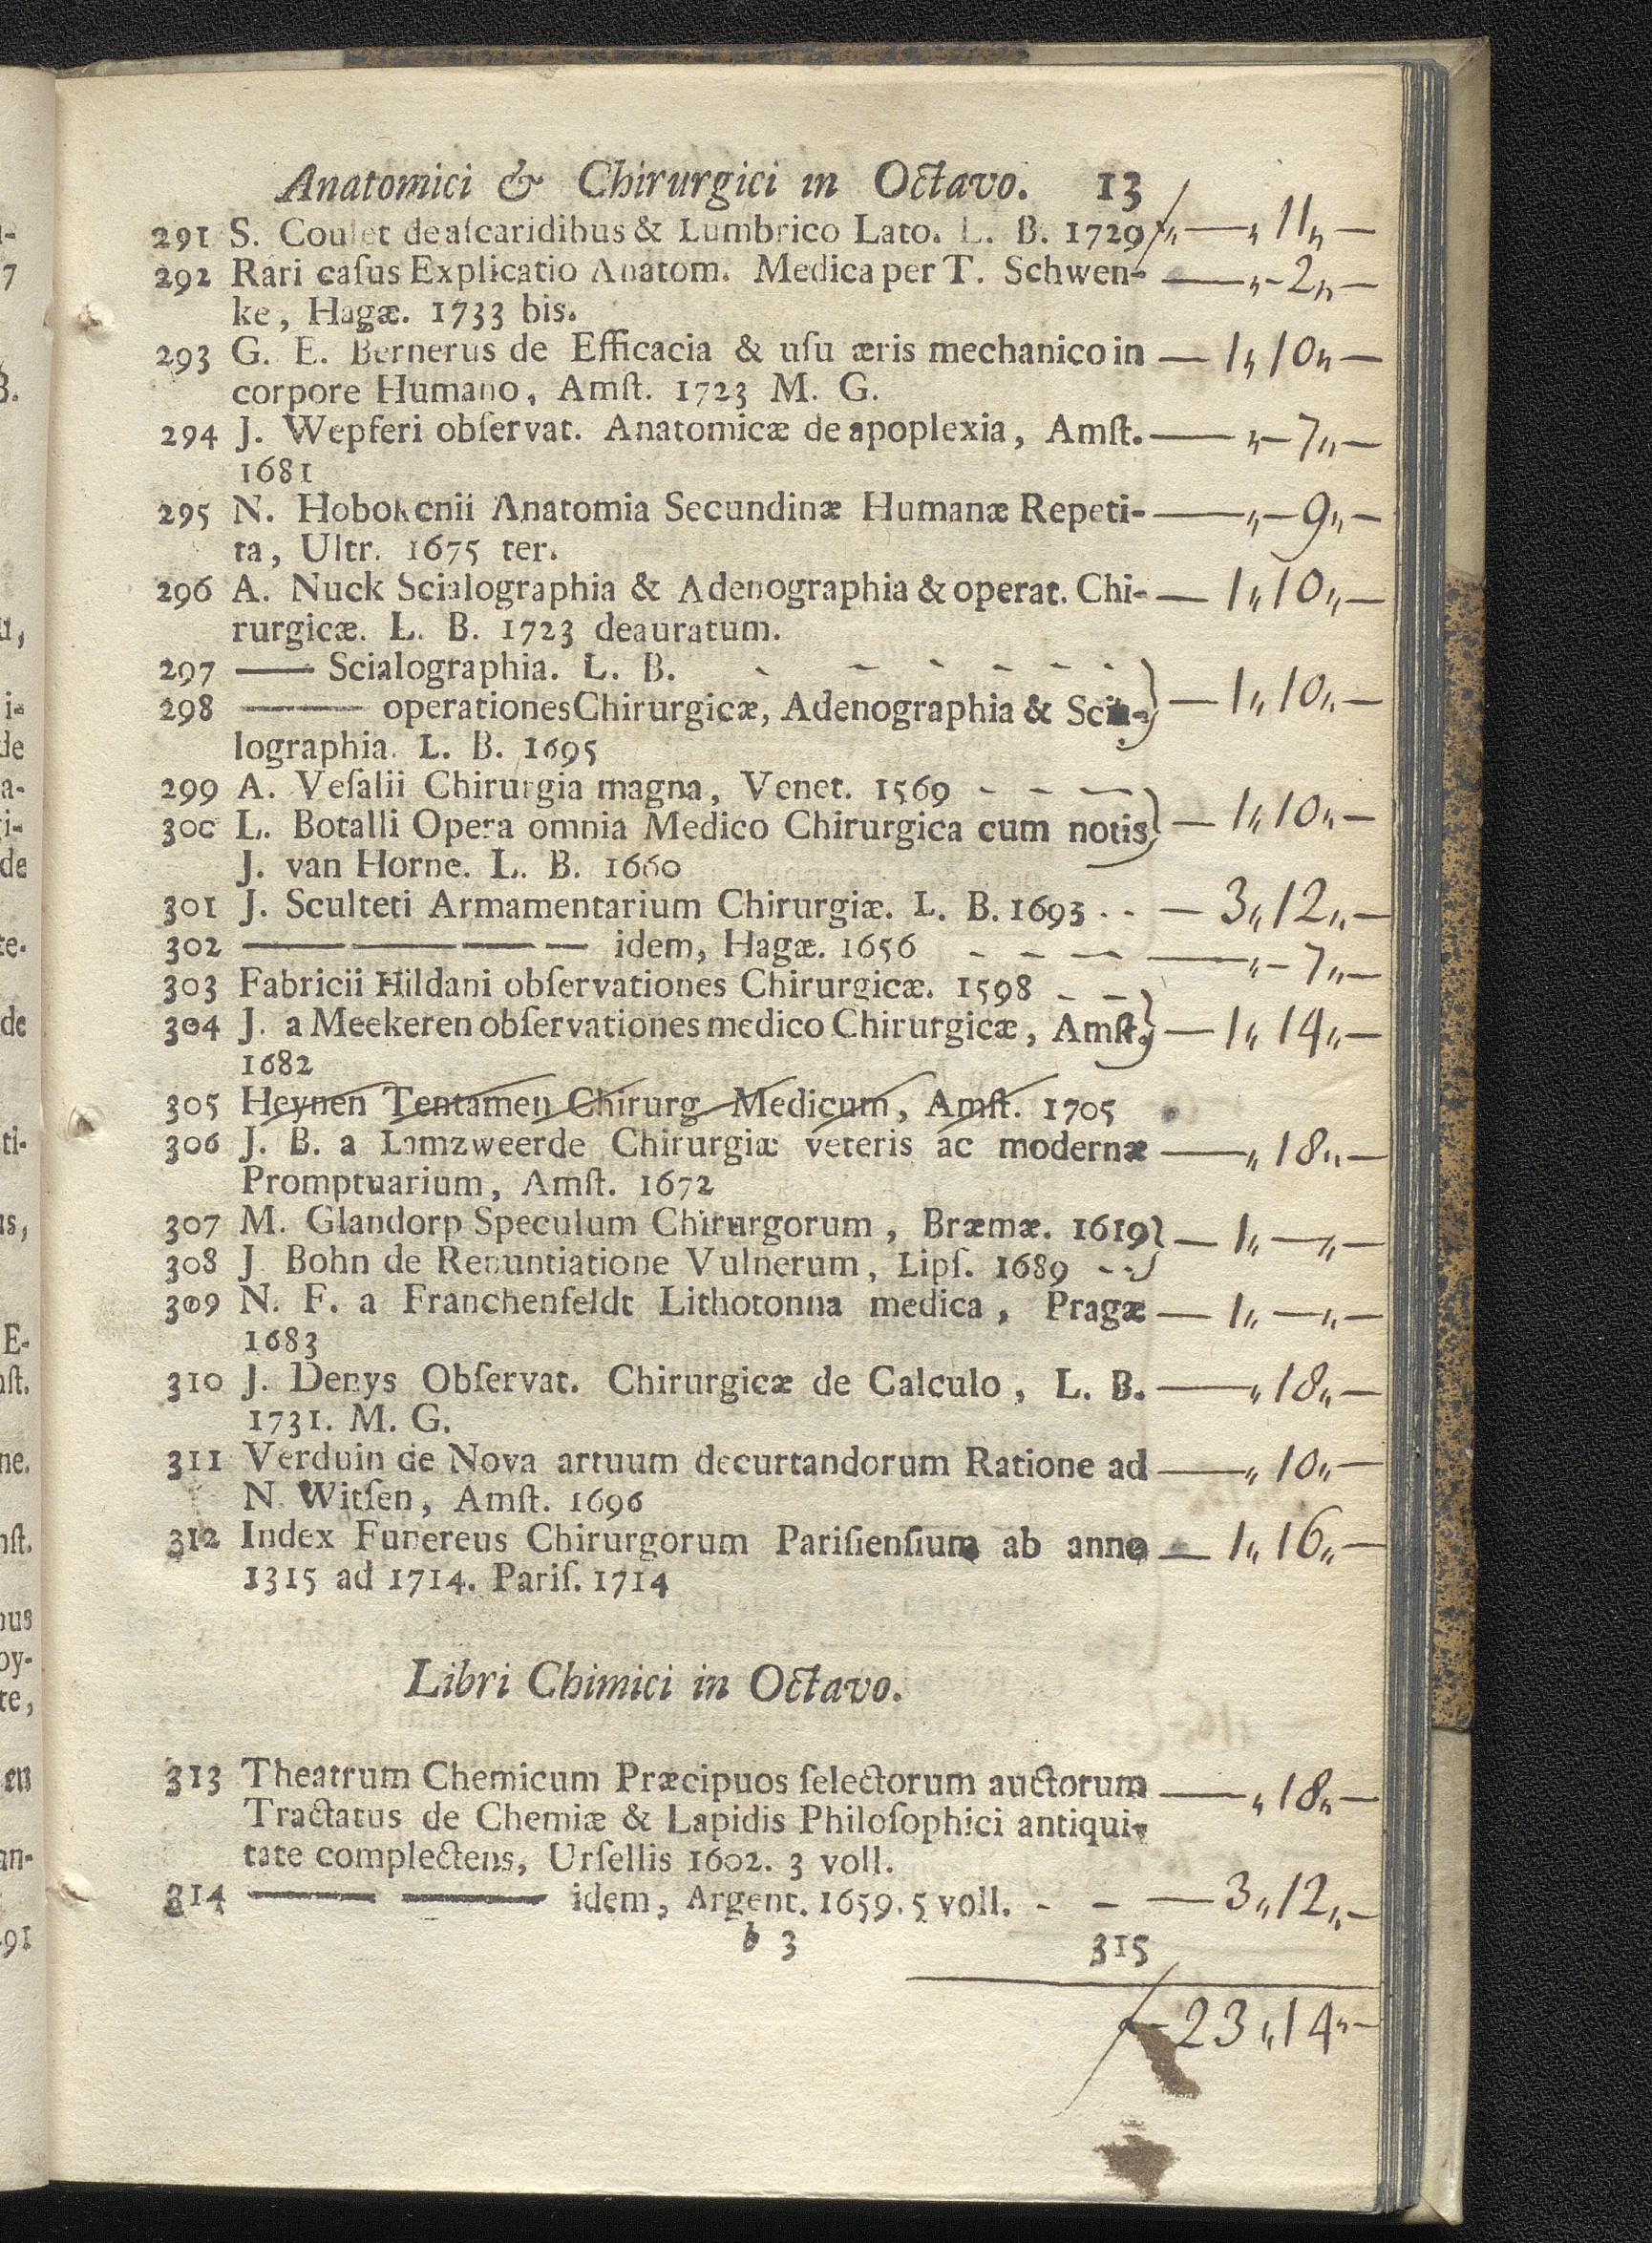 Anatomici & Chirurgici in Octavo. 13
291 S. Coulet de aſcaridibus & Lumbrico Lato. L. B. 1729 ƒ „ — „ 11 „ —
292 Rari caſus Explicatio Anatom. Medica per T. Schwen- — „ — 2 „ —
ke, Hagæ. 1733 bis.
293 G. E. Bernerus de Efficacia & uſu æris mechanico in — 1 „ 10 „ —
corpore Humano, Amſt. 1723 M. G.
294 J. Wepferi obſervat. Anatomicæ de apoplexia, Amſt. — „ — 7 „ —
1681
295 N. Hobokenii Anatomia Secundinæ Humanæ Repeti- — „ — 9 „ —
ta, Ultr. 1675 ter.
296 A. Nuck Scialographia & Adenographia & operat. Chi- — 1 „ 10 „ —
rurgicæ. L. B. 1723 deauratum.
297 —— Scialographia. L. B. - - - - - - -
298 —— operationes Chirurgicæ, Adenographia & Scia- } — 1 „ 10 „ —
lographia. L. B. 1695
299 A. Veſalii Chirurgia magna, Venet. 1569 - - —
300 L. Botalli Opera omnia Medico Chirurgica cum notis } — 1 „ 10 „ —
J. van Horne. L. B. 1660
301 J. Sculteti Armamentarium Chirurgiæ. L. B. 1693 - - — 3 „ 12 „ —
302 —— —— —— — idem, Hagæ. 1656 - - — — „ — 7 „ —
303 Fabricii Hildani obſervationes Chirurgicæ. 1598 - -
304 J. a Meekeren obſervationes medico Chirurgicæ, Amſt. } — 1 „ 14 „ —
1682
305 Heynen Tentamen Chirurg Medicum, Amſt. 1705
306 J. B. a Lamzweerde Chirurgiæ veteris ac modernæ — „ 18 „ —
Promptuarium, Amſt. 1672
307 M. Glandorp Speculum Chirurgorum, Bræmæ. 1619 } — 1 „ — „ —
308 J Bohn de Renuntiatione Vulnerum, Lipſ. 1689 - -
309 N. F. a Franchenfeldt Lithotonua medica, Pragæ — 1 „ — „ —
1683
310 J. Denys Obſervat. Chirurgicæ de Calculo, L. B. — „ 18 „ —
1731. M. G.
311 Verduin de Nova artuum decurtandorum Ratione ad — „ 10 „ —
N. Witſen, Amſt. 1696
312 Index Funereus Chirurgorum Pariſienſium ab anno — 1 „ 16 „ —
1315 ad 1714. Pariſ. 1714
Libri Chimici in Octavo.
313 Theatrum Chemicum Præcipuos ſelectorum auctorum — „ 18 „ —
Tractatus de Chemiæ & Lapidis Philoſophici antiqui-
tate complectens, Urſellis 1602. 3 voll.
314 —— —— idem, Argent. 1659. 5 voll. - - — 3 „ 12 „ —
b 3 315
ƒ — 23 „ 14 „ —